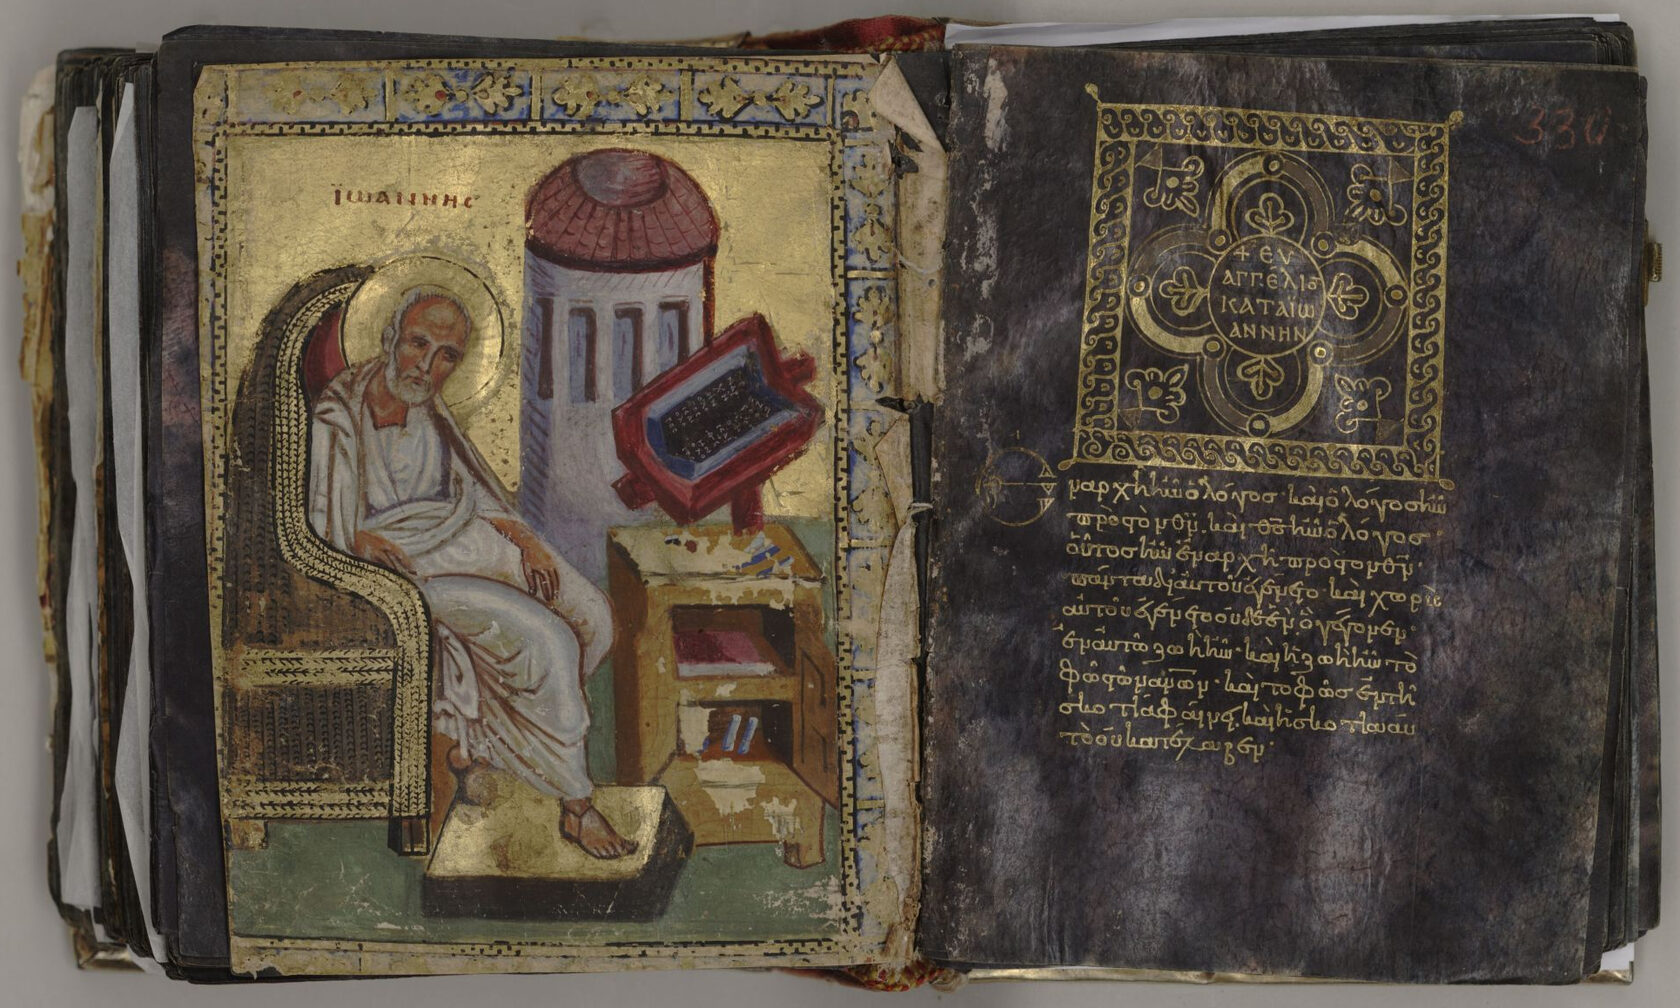 ϊωαννης
+ ΕΥ
ΑΓΓΕΛΙΟ
ΚΑΤΑ ΙΩ
ΑΝΝΗΝ
Ἐν ἀρχῆ ἦν ὁ λόγος· καὶ ὁ λόγος ἦν
πρὸς τὸν θ̅ν̅· καὶ θ̅ς̅ ἦν ὁ λόγος·
οὗτος ἦν ἐν ἀρχῆ πρὸς τὸν θ̅ν̅·
πάντα δι αὐτοῦ ἐγένετο· καὶ χωρὶς
αὐτοῦ ἐγένετο οὐδὲ ἓν ὃ γέγονεν·
ἐν αὐτῶ ζωὴ ἦν· καὶ ἡ ζωὴ ἦν τὸ
φῶς τῶν α̅ν̅ω̅ν̅· καὶ τὸ φῶς ἐν τῆ
σκοτία φαίνει, καὶ ἡ σκοτία αὐ
τὸ οὐ κατέλαβεν·